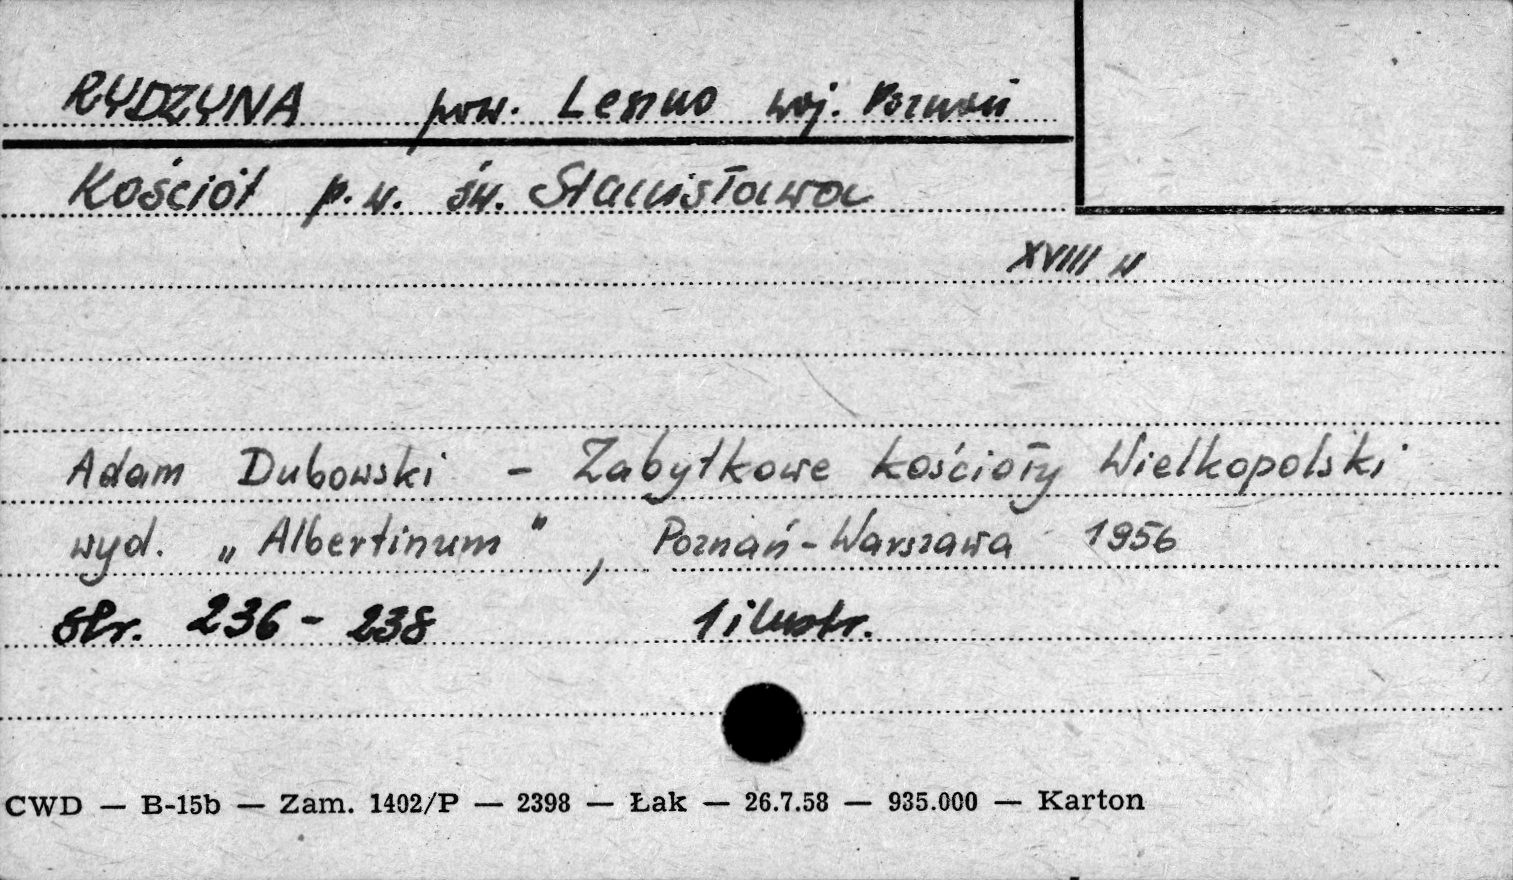 RYDZYNA pow. Leszno woj. Poznań
Kościół p.w. św. Stanisława
XVIII w
Adam Dubowski - Zabytkowe kościoły Wielkopolski
wyd. „Albertinum", Poznań-Warszawa 1956
str. 236-238 1 ilustr.
CWD — B-15b — Zam. 1402/P — 2398 — Łak — 26.7.58 — 935.000 — Karton